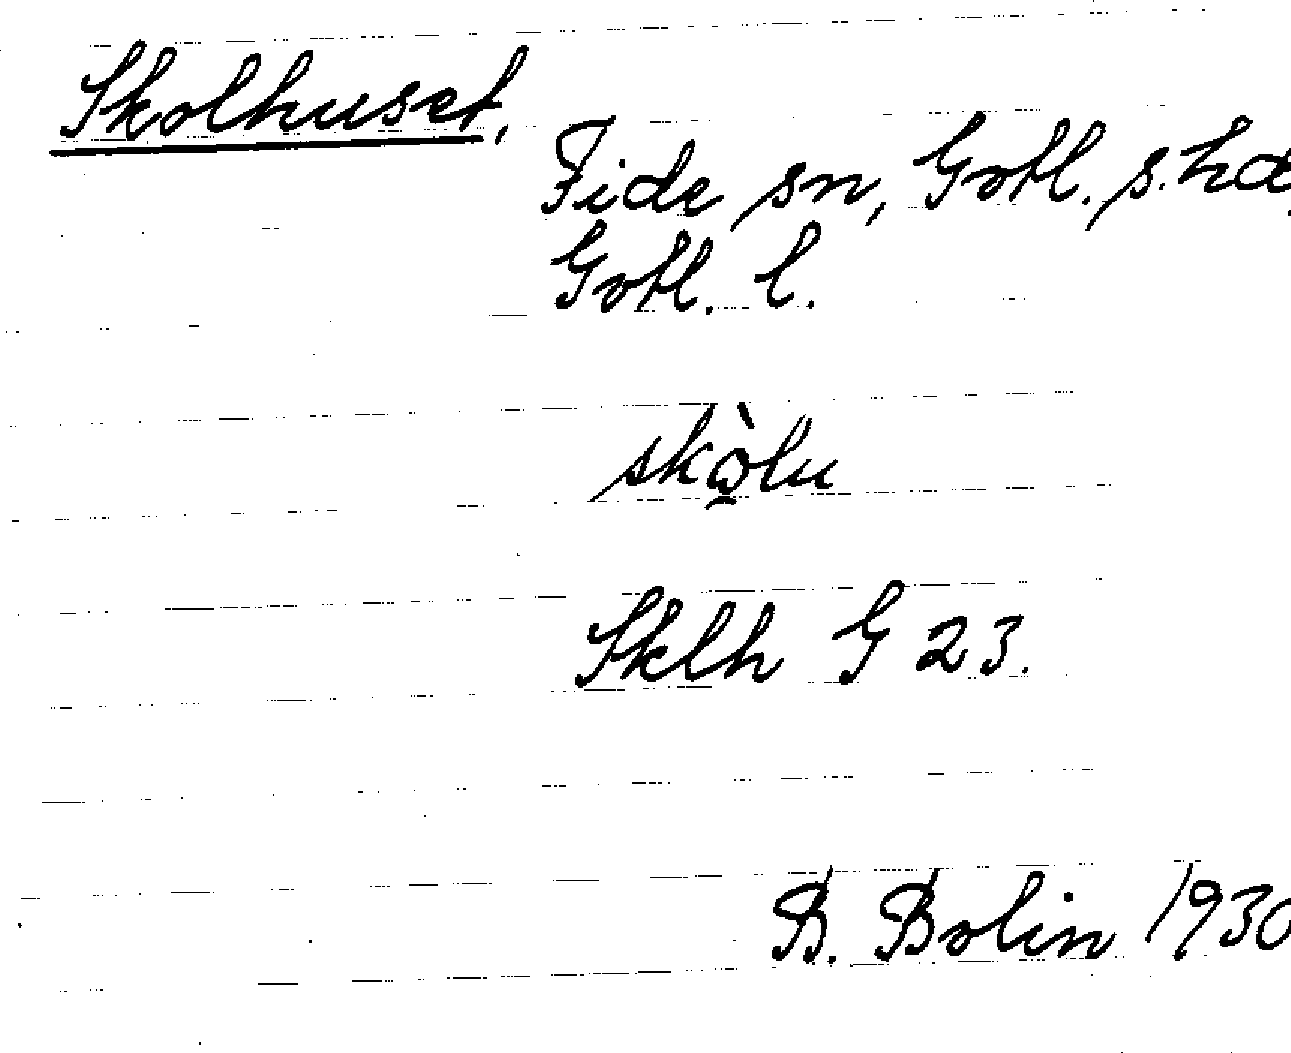 Skolhuset,
Fide sn, Gotl. s. hd.
Gotl. l.
skò̱lu
Sklh G 23.
B. Bolin 1930